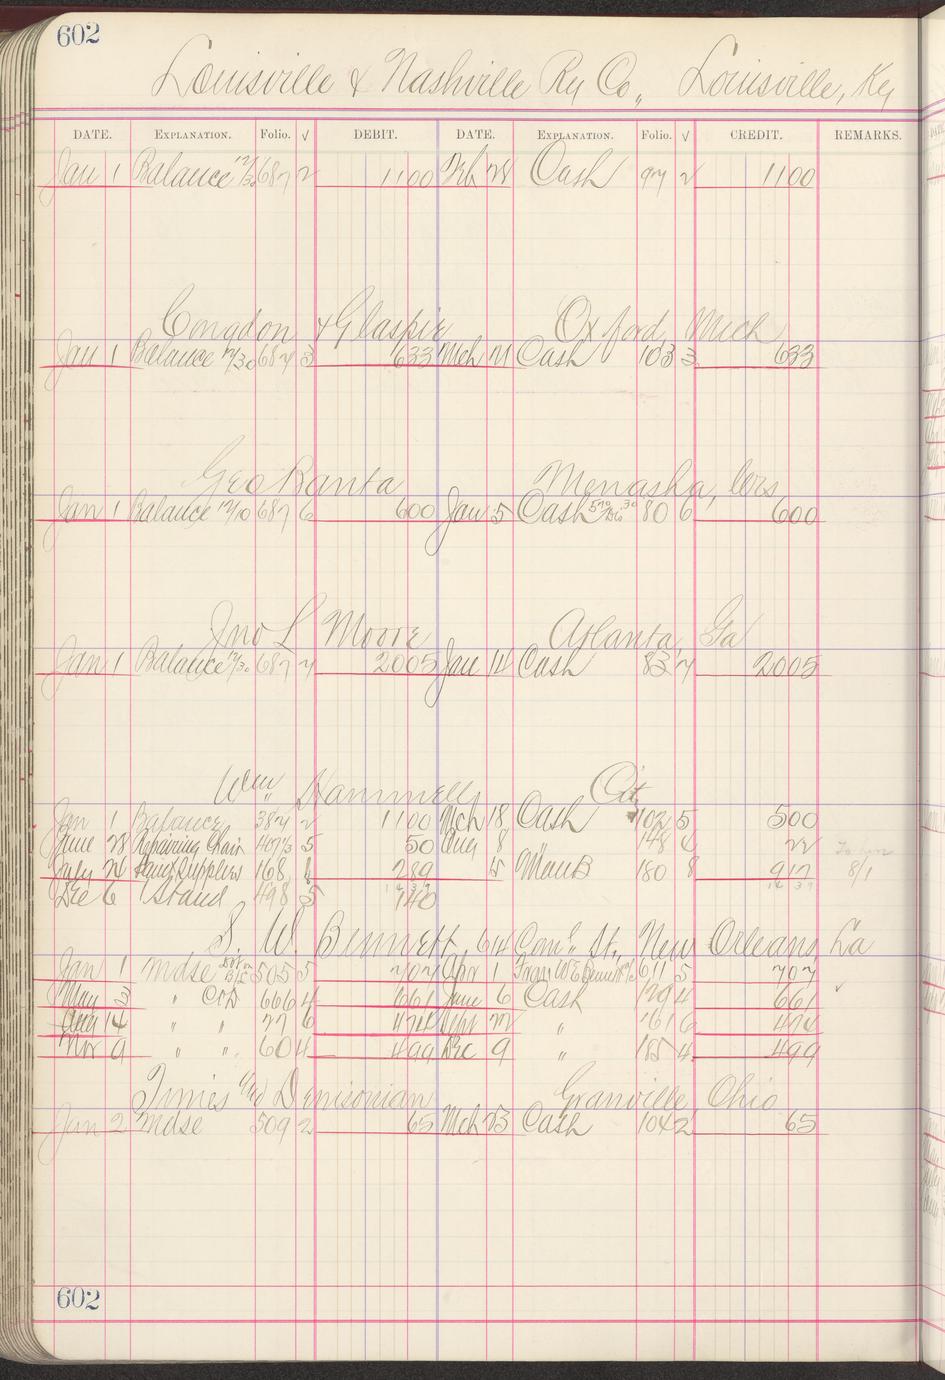 602
Louisville & Nashville Ry Co., Louisville, Ky
DATE. EXPLANATION. Folio. √ DEBIT. DATE. EXPLANATION. Folio. √ CREDIT. REMARKS.
Jan 1 Balance 12/30 687 2 1100 Feb 28 Cash 97 2 1100
Congdon & Glaspie Oxford Mich
Jan 1 Balance 12/30 687 3 633 Mch 21 Cash 103 3 633
Geo Banta Menasha, Wis
Jan 1 Balance 12/10 687 6 600 Jan 5 Cash 80 6 600
Jno L Moore Atlanta, Ga
Jan 1 Balance 12/30 687 7 2005 Jan 14 Cash 83 7 2005
Wm Hammell City
Jan 1 Balance 384 2 1100 Mch 18 Cash 102 5 500
June 28 Repairing Chair 407½ 5 50 Aug 8 " 148 6 22
July 24 Supplies 168 289 15 180 8 917 8/1
1439 1439
Dec 6 Stand 498 5 140
S. W. Bennett, 614 Com'l St, New Orleans, La
Jan 1 Mdse 505 5 707 Apr 1 Tran W E Bennett 611 5 707
May 3 " 666 4 661 June 6 Cash 129 4 661
Aug 14 " " 77 6 474 Sept 22 " 161 6 474
Nov 9 " " 604 499 Dec 9 " 185 4 499
Times and Denisonian Granville Ohio
Jan 2 Mdse 509 2 65 Mch 23 Cash 104 2 65
602